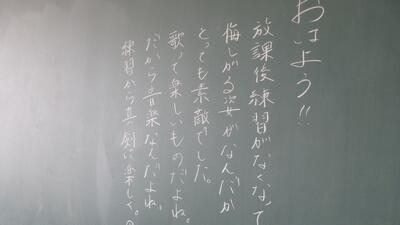 おはよう!!
放課後練習がなくなって
悔しがる姿がなんだか
とっても素敵でした。
歌って楽しいものだよね。
だから音楽なんだよね、
練習から真剣に楽しく。